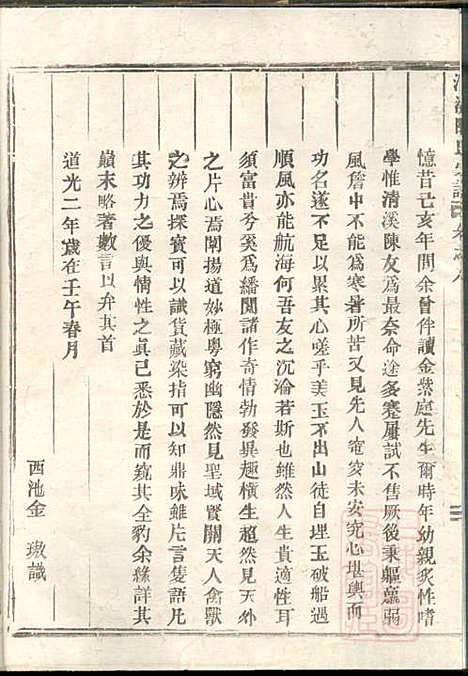 憶昔己亥年間余曾伴讀金燕庭先生爾時年幼親炙性嗜
學惟清溪陳友爲最奈命途多蹇屢試不售厥後秉軀羸弱
風詹中不能爲寒暑所苦又見先人窀穸未安究心堪輿而
功名遂不足以累其心嗟乎美玉不出山徒自理玉破船過
順風亦能航海何吾友之沉淪若斯也雖然人生貴適性耳
須富貴兮奚爲繙閱諸作奇情勃發異趣橫生超然見天外
之片心焉闡揚道妙極粵窮幽隱然見聖域賢關天人禽獸
之辨焉探寶可以識貨藏染指可以知鼎味雖片言隻語凡
其功力之優與情性之真已悉於是而窺其全豹余緣詳其
巔末略著數言以弁其首
道光二年歲在壬午春月
西池金璈識